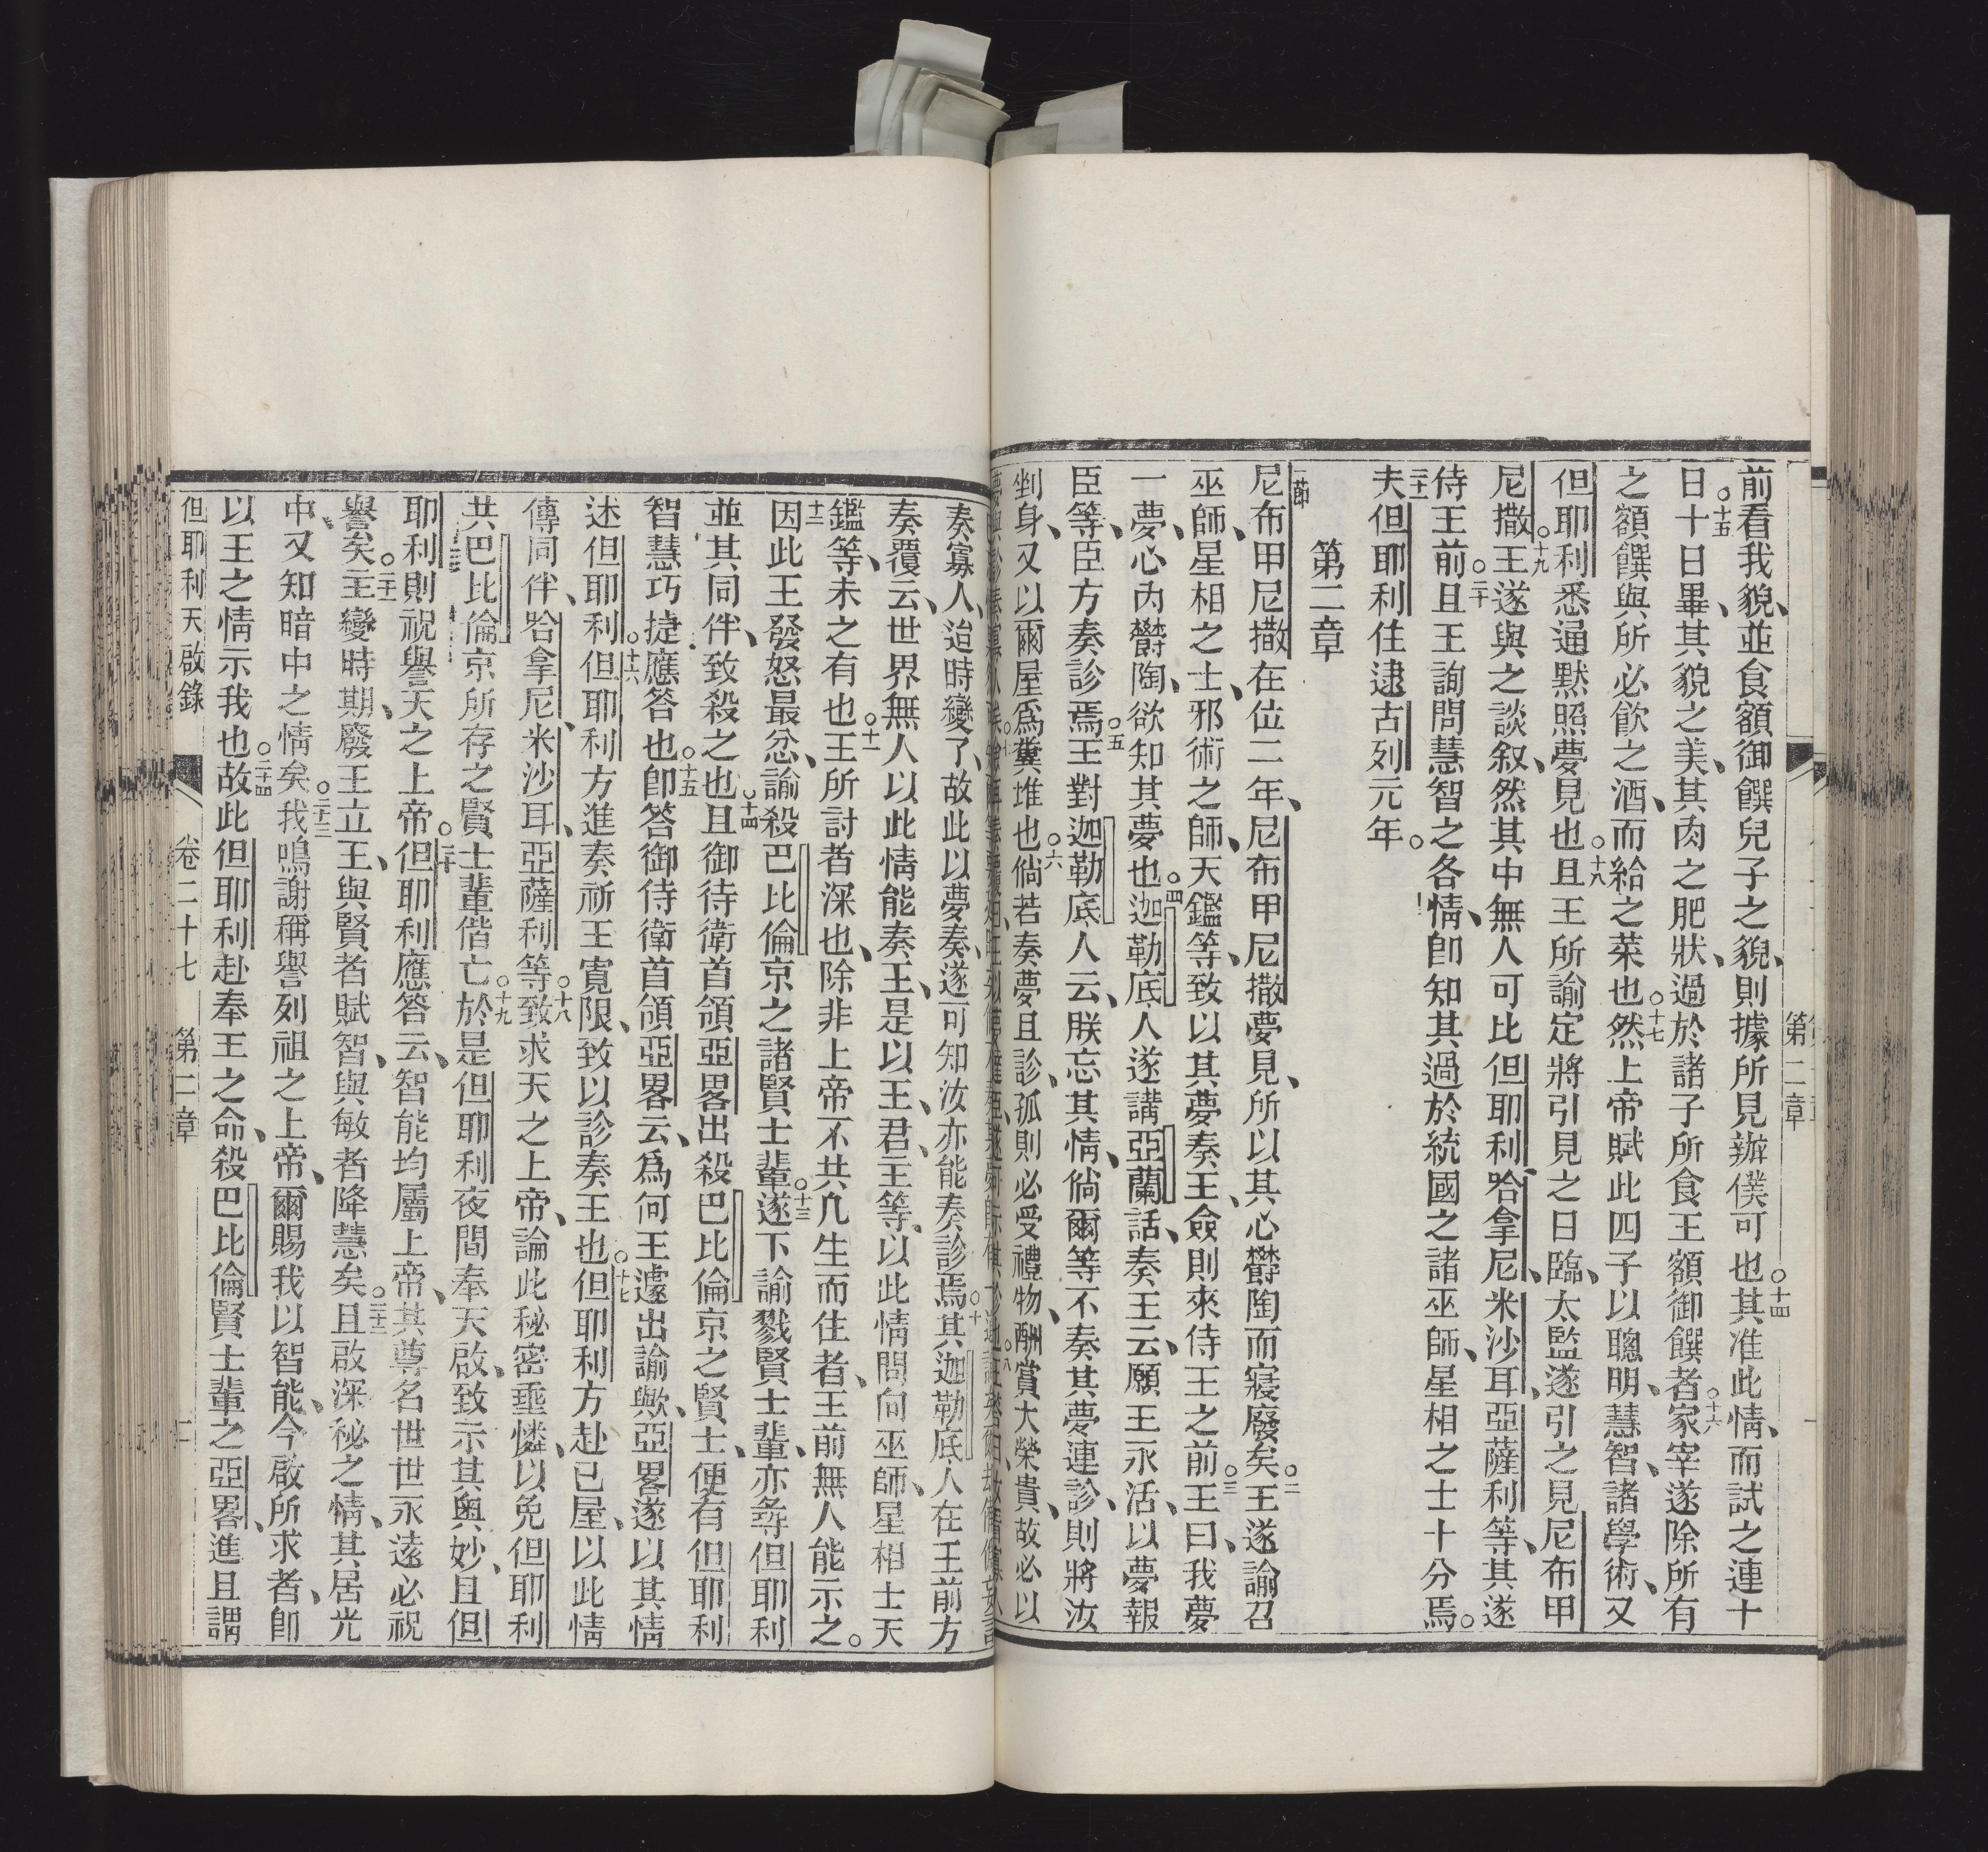 前看我貌、並食額御饌兒子之貌、則據所見辦僕可也○十四其准此情、而試之連十
日○十五十日畢、其貌之美、其肉之肥狀、過於諸子所食王額御饌者○十六家宰遂除所有
之額饌與所必飲之酒、而給之菜也○十七然上帝賦此四子以聰明、慧智、諸學術、又
但耶利悉通黙照夢見也○十八且王所諭定將引見之日臨、太監遂引之見尼布甲
尼撒○十九王遂與之談叙、然其中無人可比但耶利、哈拿尼、米沙耳、亞薩利等、其遂
侍王前○二十且王詢問慧智之各情、卽知其過於統國之諸巫師、星相之士十分焉。
二十一夫但耶利住逮古列元年。
第二章
一節尼布甲尼撒在位二年、尼布甲尼撒夢見、所以其心欝陶而寢廢矣○二王遂諭召
巫師、星相之士、邪術之師、天鑑等、致以其夢奏王、僉則來侍王之前○三王曰、我夢
一夢、心內欝陶、欲知其夢也○四迦勒底人遂講亞蘭話、奏王云、願王永活、以夢報
臣等、臣方奏診焉○五王對迦勒底人云、朕忘其情、倘爾等不奏其夢連診、則將汝
剉身、又以爾屋爲糞堆也○六倘若奏夢且診、孤則必受禮物、酬賞大榮貴、故必以
奏寡人、迨時變了、故此以夢奏、遂可知汝亦能奏診焉○十其迦勒底人在王前方
奏覆云、世界無人以此情能奏王、是以王、君、主等、以此情問向巫師、星相士天
鑑等、未之有也○十一王所討者深也、除非上帝不共凡生而住者、王前無人能示之。
十二因此王發怒最忿、諭殺巴比倫京之諸賢士輩○十三遂下諭戮賢士輩、亦尋但耶利
並其同伴、致殺之也○十四且御待衛首領亞畧出殺巴比倫京之賢士、便有但耶利
智慧巧捷應答也○十五卽答御侍衛首領亞畧云、爲何王遽出諭歟、亞畧遂以其情
述但耶利○十六但耶利方進奏祈王寬限、致以診奏王也○十七但耶利方赴已屋、以此情
傳同伴、哈拿尼、米沙耳、亞薩利等○十八致求天之上帝、論此秘密垂憐、以免但耶利
共巴比倫京所存之賢士輩偕亡○十九於是但耶利夜間奉天啟、致示其奧妙、且但
耶利則祝譽天之上帝○二十但耶利應答云、智能均屬上帝、其尊名世世永遠必祝
譽矣○二十一主變時期、廢王立王、與賢者賦智、與敏者降慧矣○二十二且啟深秘之情、其居光
中、又知暗中之情矣○二十三我鳴謝稱譽列祖之上帝、爾賜我以智能、今啟所求者、卽
以王之情示我也○二十四故此但耶利赴奉王之命、殺巴比倫賢士輩之亞畧、進且謂
但耶利天啟錄 卷二十七 第二章 二
第二章